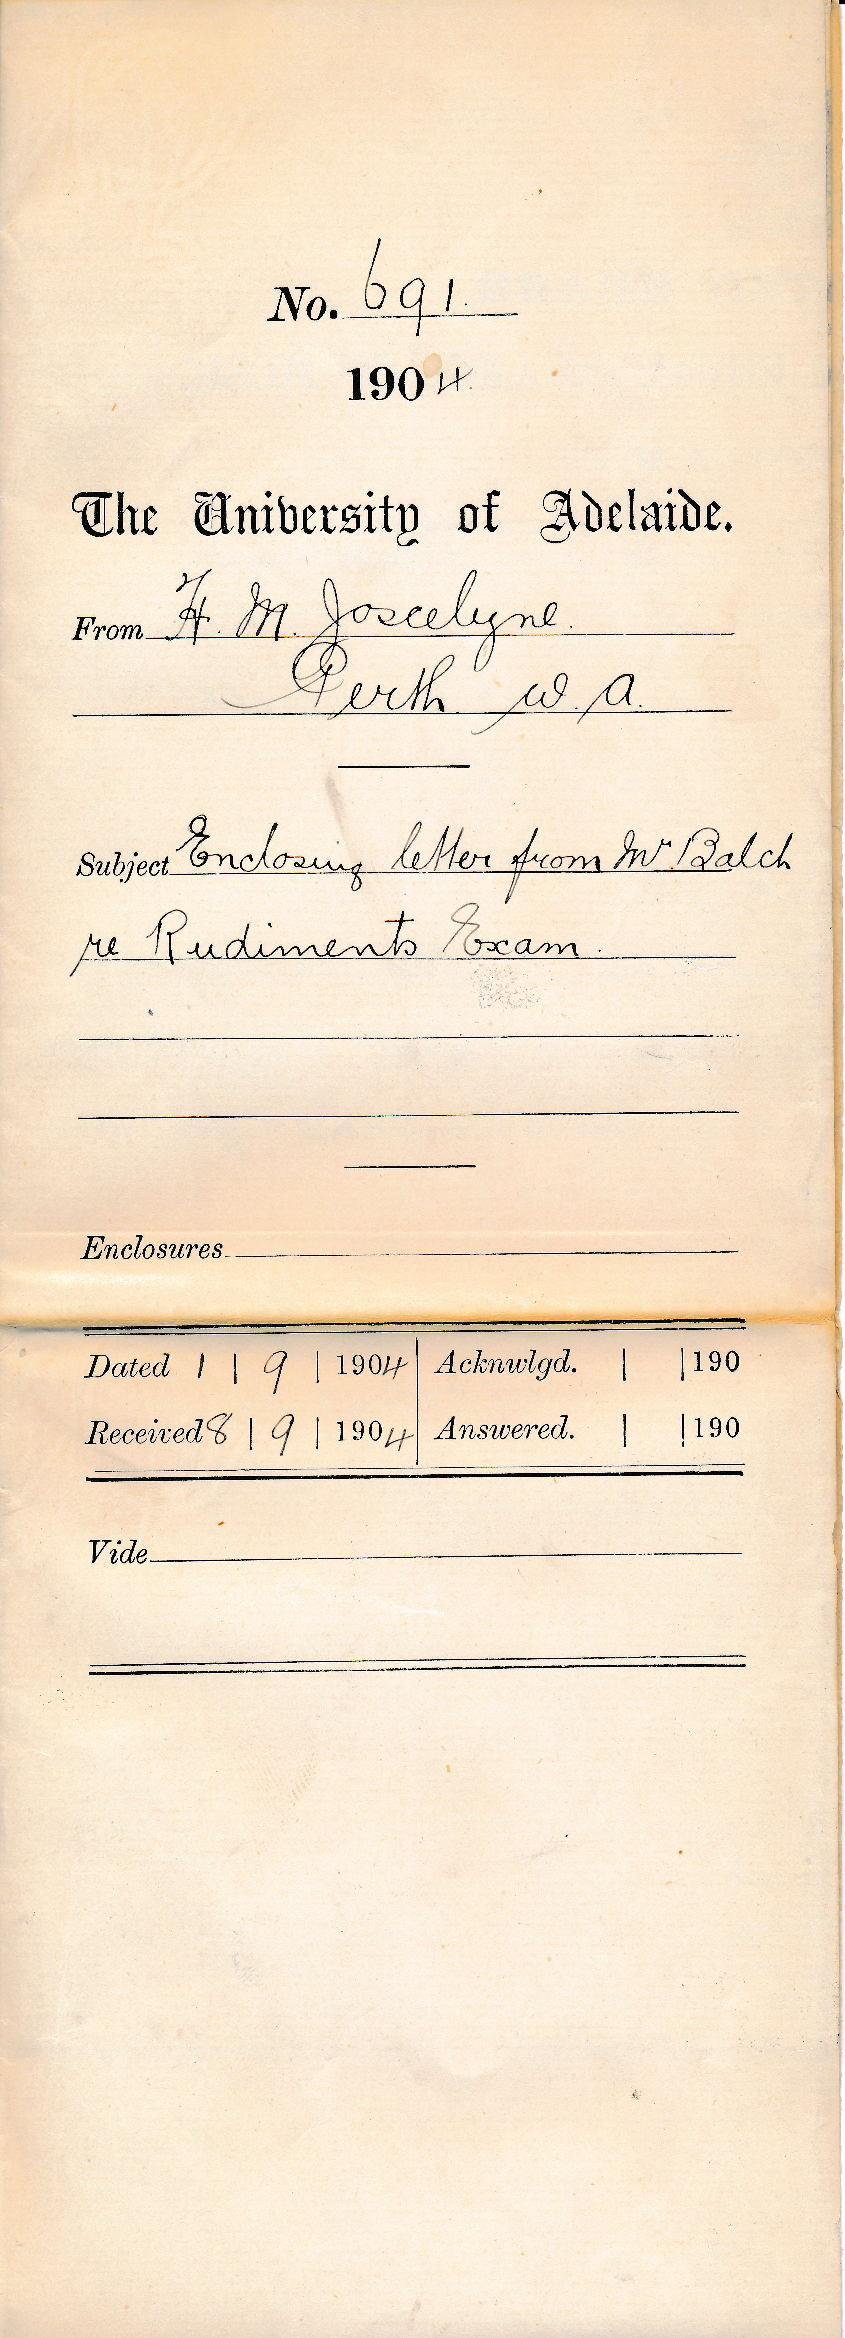 No. 691.
1904.
The University of Adelaide.
From H. M. Joscelyne.
Perth W. A.
Subject Enclosing letter from Mr Balch
re Rudiments Exam.
Enclosures
Dated 1 | 9 | 1904 Acknwlgd. | | 190
Received 8 | 9 | 1904 Answered. | | 190
Vide